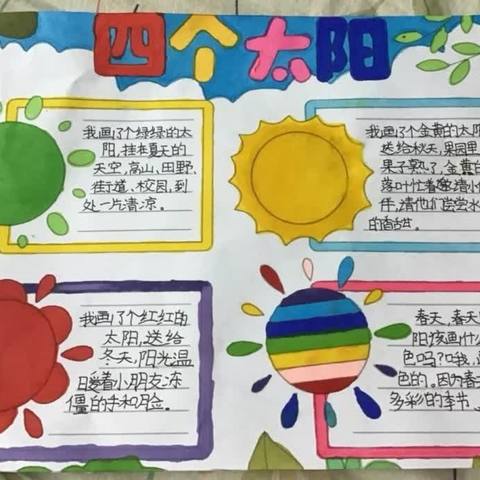 四个太阳
我画了个绿绿的太
阳,挂在夏天的
天空,高山,田野,
街道、校园,到
处一片清凉。
我画了个金黄的太阳
送给秋天,果园里
果子熟了,金黄的
落叶忙着邀请小伙
伴,请他们尝尝水
的香甜
我画了个红红的
太阳,送给
冬天,阳光温
暖着小朋友冻
僵的手和脸。
春天,春天
阳该画什么
色吗?哦,
色的。因为春天
多彩的季节